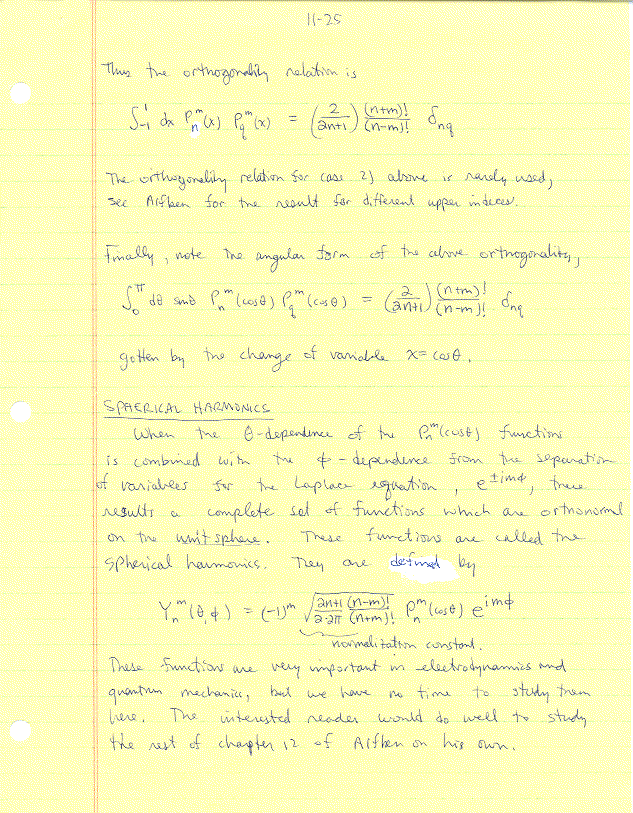 11-25
Thus the orthogonality relation is
∫₋₁¹ dx Pₙᵐ(x) P_qᵐ(x) = (2/(2n+1)) (n+m)!/(n-m)! δ_nq
The orthogonality relation for case 2) above is rarely used,
see Arfken for the result for different upper indices.
Finally, note the angular form of the above orthogonality,
∫₀^π dθ sinθ Pₙᵐ(cosθ) P_qᵐ(cosθ) = (2/(2n+1)) (n+m)!/(n-m)! δ_nq
gotten by the change of variable x = cosθ.
SPHERICAL HARMONICS
When the θ-dependence of the Pₙᵐ(cosθ) functions
is combined with the φ-dependence from the separation
of variables for the Laplace equation, e^{±imφ}, there
results a complete set of functions which are orthonormal
on the unit sphere. These functions are called the
spherical harmonics. They are defined by
Yₙᵐ(θ,φ) = (-1)ᵐ √((2n+1)/(2·2π) (n-m)!/(n+m)!) Pₙᵐ(cosθ) e^{imφ}
normalization constant.
These functions are very important in electrodynamics and
quantum mechanics, but we have no time to study them
here. The interested reader would do well to study
the rest of chapter 12 of Arfken on his own.